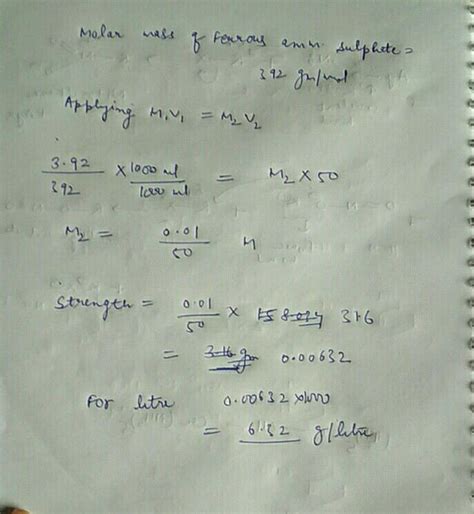 Molar mass of Ferrous amm. sulphate =
392 gm/mol
Applying M1V1 = M2V2
3.92/392 × 1000 ml/1000 ml = M2 × 50
M2 = 0.01/50 M
Strength = 0.01/50 × 316
= 3.16 gm 0.00632
For litre 0.00632 × 1000
= 6.32 g/litre